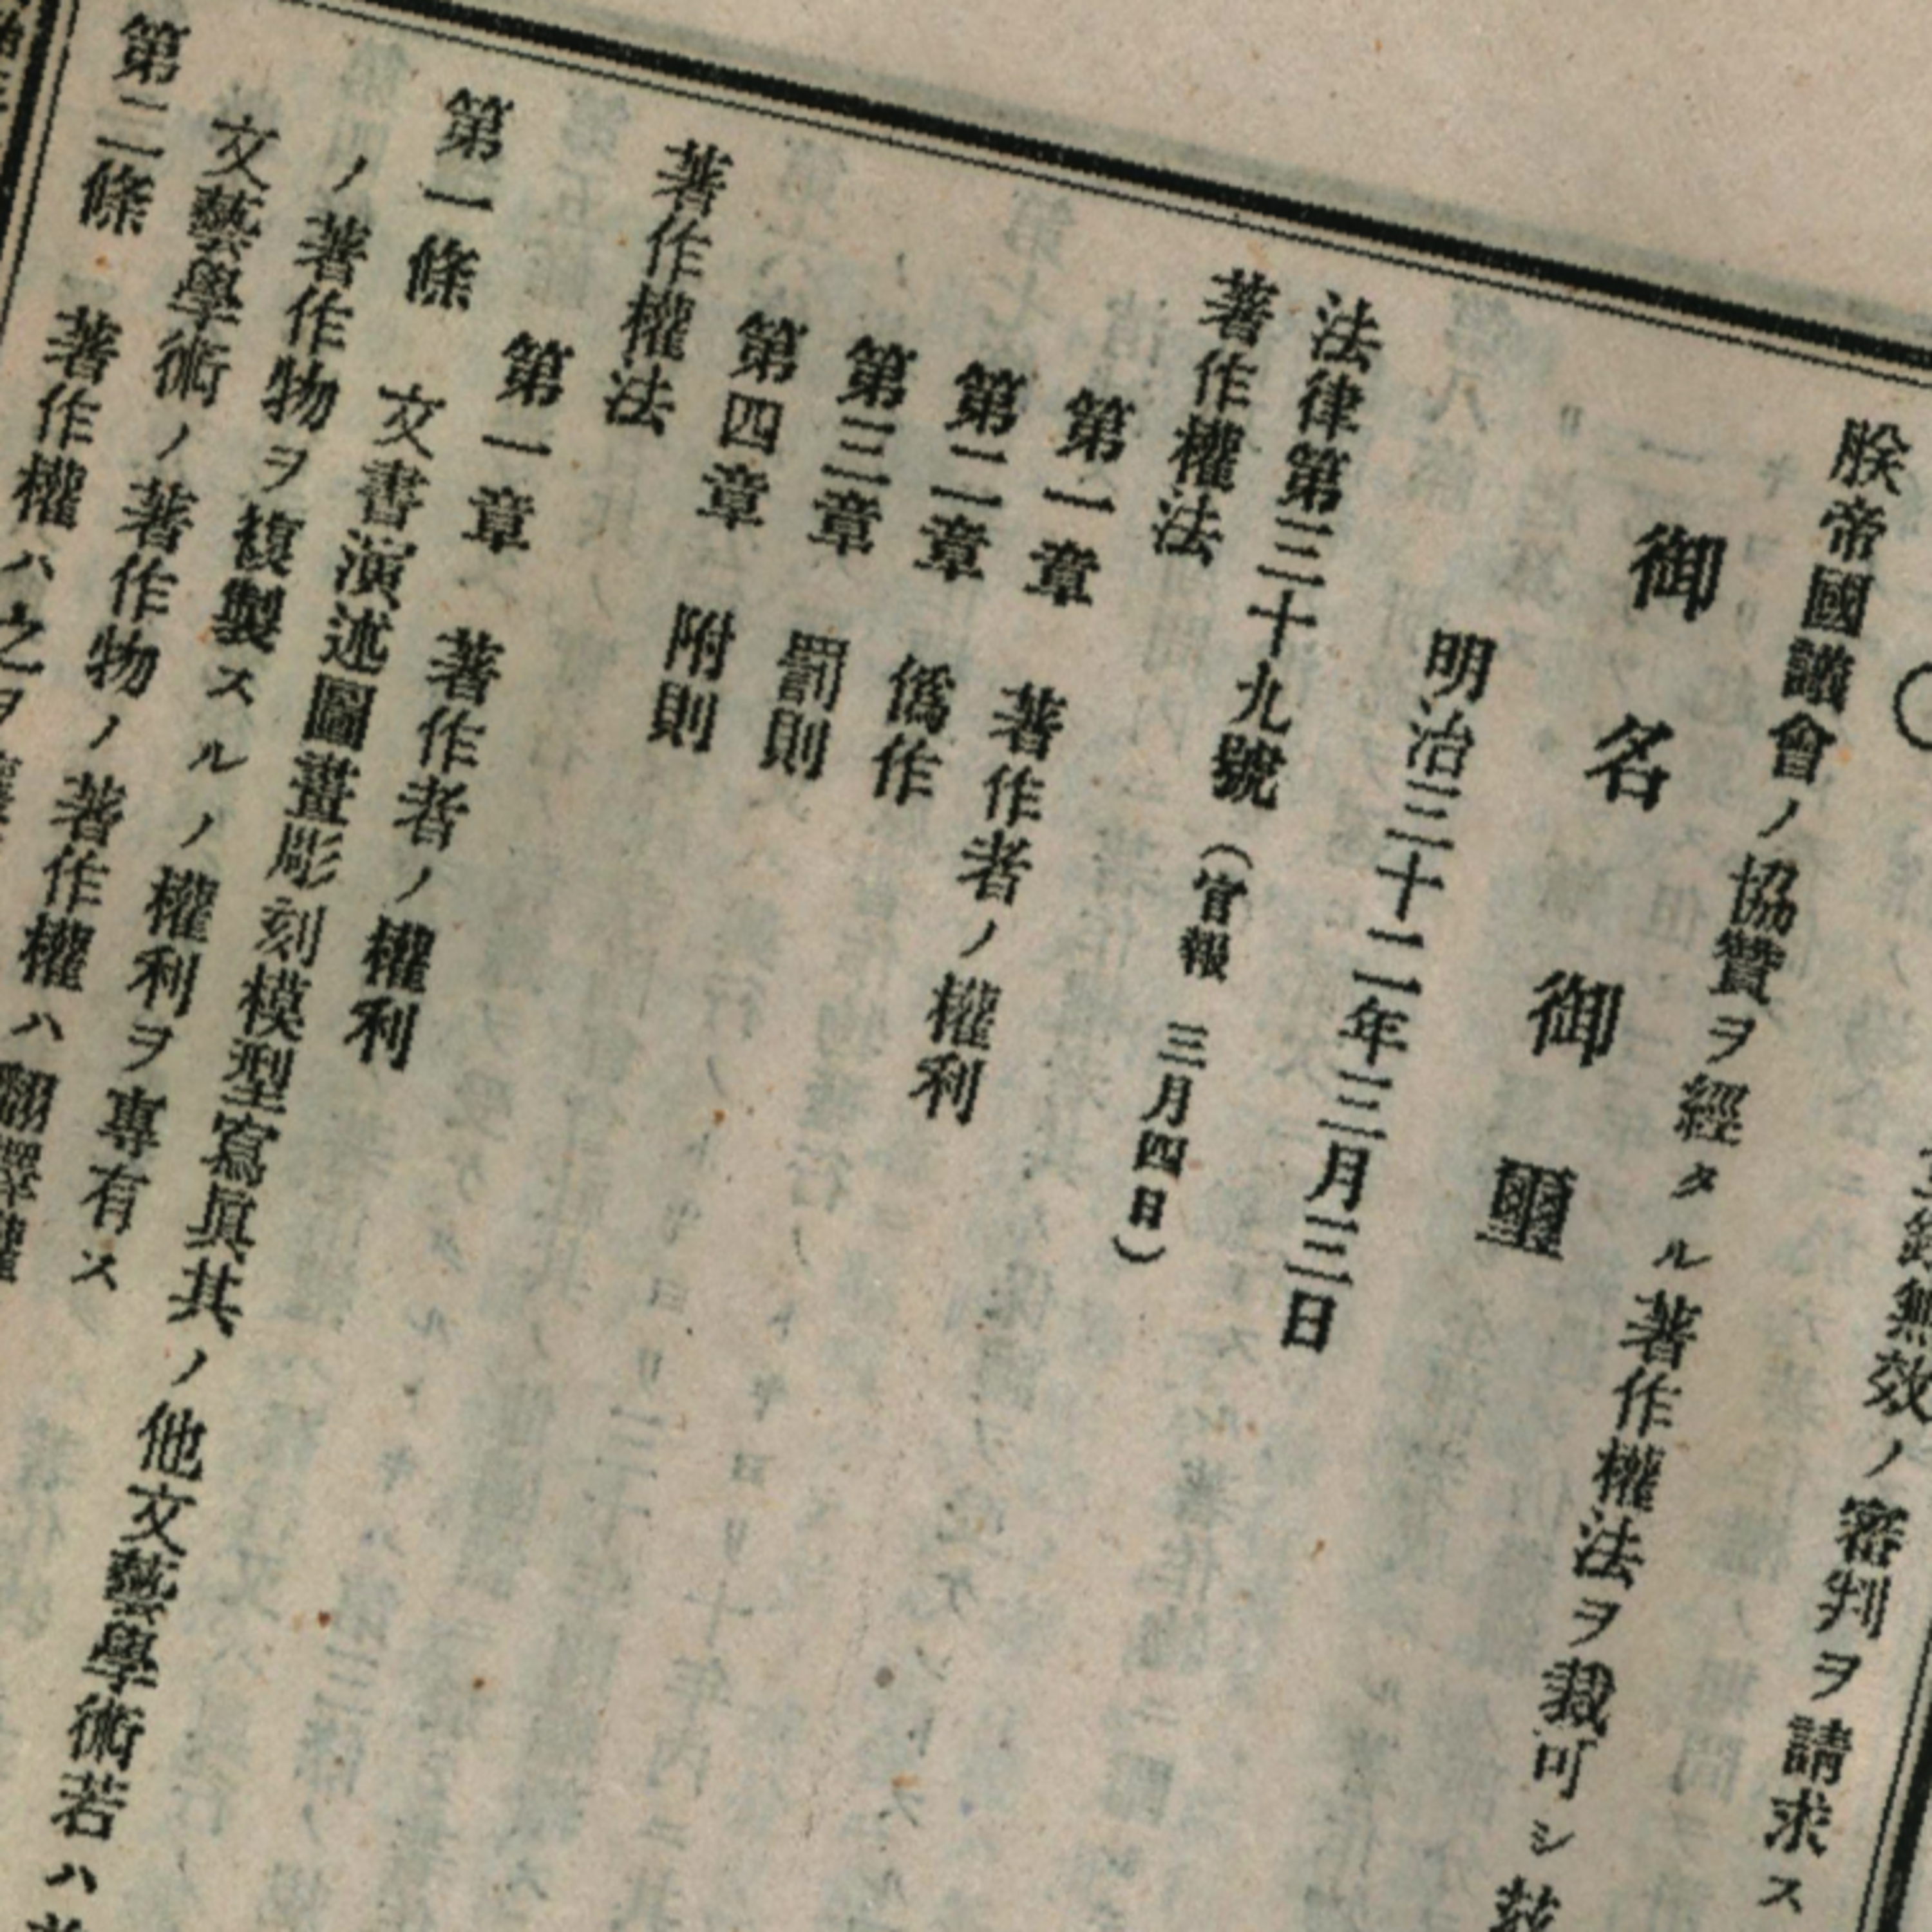 ○
無效ノ審判ヲ請求ス
朕帝國議會ノ協贊ヲ經タル著作權法ヲ裁可シ茲
御名御璽
明治三十二年三月三日
法律第三十九號（官報三月四日）
著作權法
第一章 著作者ノ權利
第二章 僞作
第三章 罰則
第四章 附則
著作權法
第一章 著作者ノ權利
第一條 文書演述圖畫彫刻模型寫眞其ノ他文藝學術若ハ
ノ著作物ヲ複製スルノ權利ヲ專有ス
文藝學術ノ著作物ノ著作權ハ翻譯權
第二條 著作權ハ之ヲ